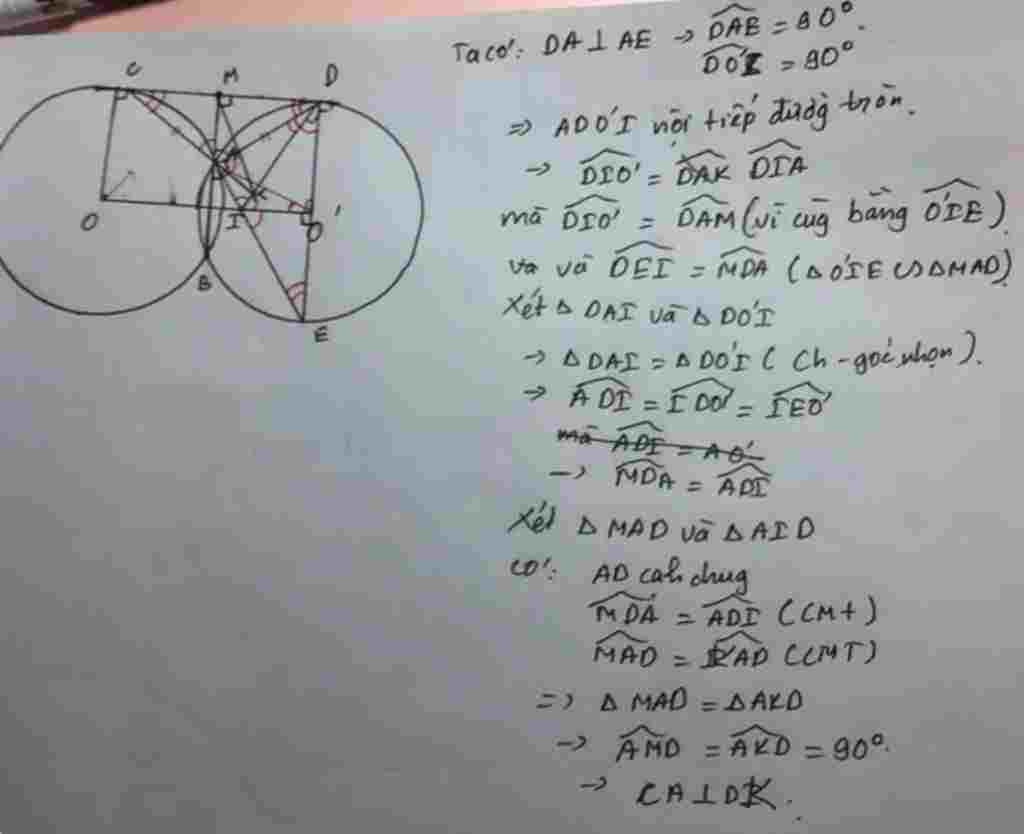 Ta có: DA ⊥ AE → DAE = 90°.
DO'I = 90°
⇒ ADO'I nội tiếp đường tròn.
→ DIO' = DIA
mà DIO' = DAM (vì cùg bằng O'IE)
và DEI = MDA (△O'IE ∽ △MAD)
Xét △ DAI và △ DO'I
→ △ DAI = △ DO'I ( Ch - góc nhọn ).
→ ADI = IDO' = IEO'
mà ADI = AO'
→ MDA = ADI
Xét △ MAD và △ AID
Có: AD cạh chug
MDA = ADI (CMt)
MAD = KAD (CMT)
=> △ MAD = △AKD
→ AMD = AKD = 90°.
→ CA ⊥ DK.
C
M
D
O
I
O'
B
E